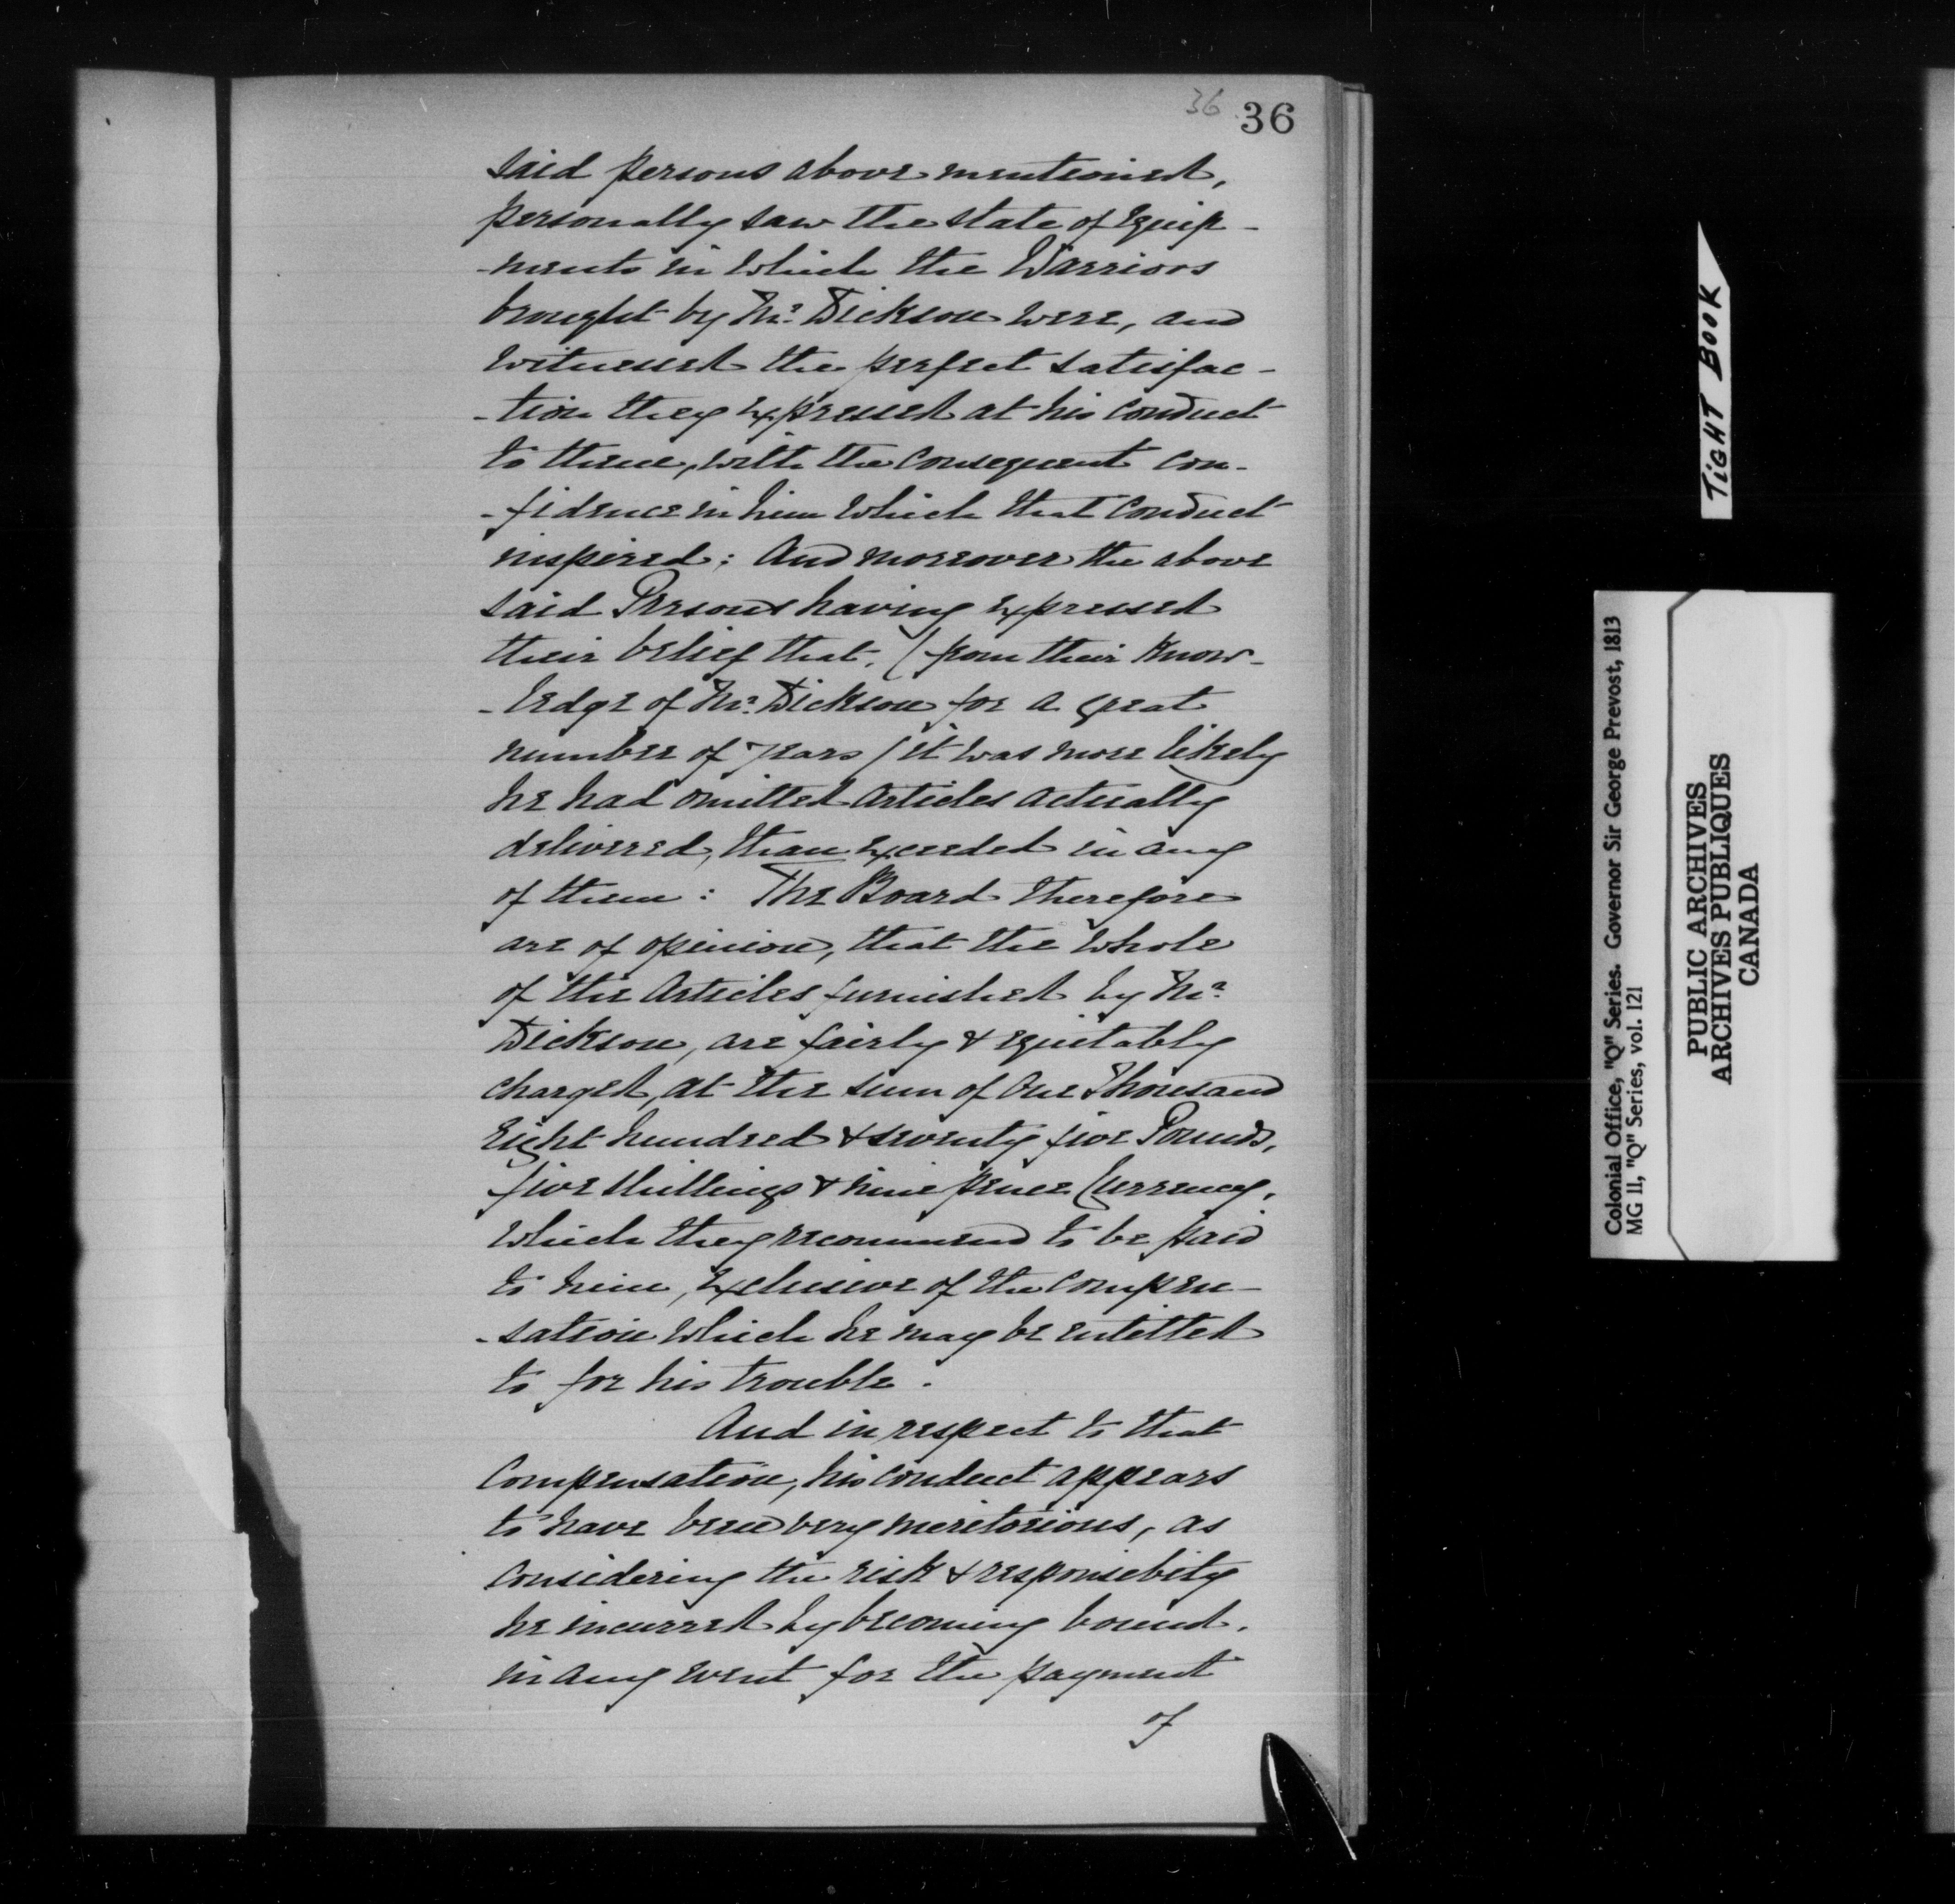 36 36
said persons above mentioned,
personally saw the state of Equip-
-ments in which the Warriors
brought by Mr. Dickson were, and
witnessed the perfect satisfac-
-tion they expressed at his conduct
to them, with the consequent con-
-fidence in him which that conduct
inspired; And moreover the above
said Persons having expressed
their belief that, (from their Know-
-ledge of Mr. Dickson for a great
number of years / it was more likely
he had omitted Articles actually
delivered, than exceeded in any
of them: The Board therefore
are of opinion, that the whole
of the Articles furnished by Mr.
Dickson, are fairly & equitably
charged, at the sum of One Thousand
Eight hundred & seventy five Pounds,
five shillings & nine pence Currency,
which they recommend to be paid
to him, exclusive of the compen-
-sation which he may be entitled
to for his trouble.
And in respect to that
Compensation, his conduct appears
to have been very meritorious, as
considering the risk & responsibity
he incurred by becoming bound,
in any event for the payment
of
TIGHT BOOK
Colonial Office, "Q" Series. Governor Sir George Prevost, 1813
MG 11, "Q" Series, vol. 121
PUBLIC ARCHIVES
ARCHIVES PUBLIQUES
CANADA